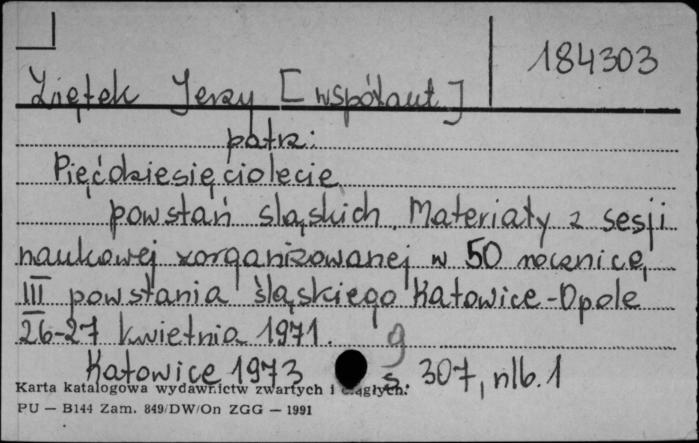 184303
Ziętek Jerzy [współaut.]
patrz:
Pięćdziesięciolecie
powstań śląskich. Materiały z sesji
naukowej zorganizowanej w 50 rocznicę
III powstania śląskiego Katowice-Opole
26-27 kwietnia 1971.
9
Katowice 1973 s. 307, nlb. 1
Karta katalogowa wydawnictw zwartych i ciągłych.
PU — B144 Zam. 849/DW/On ZGG — 1991